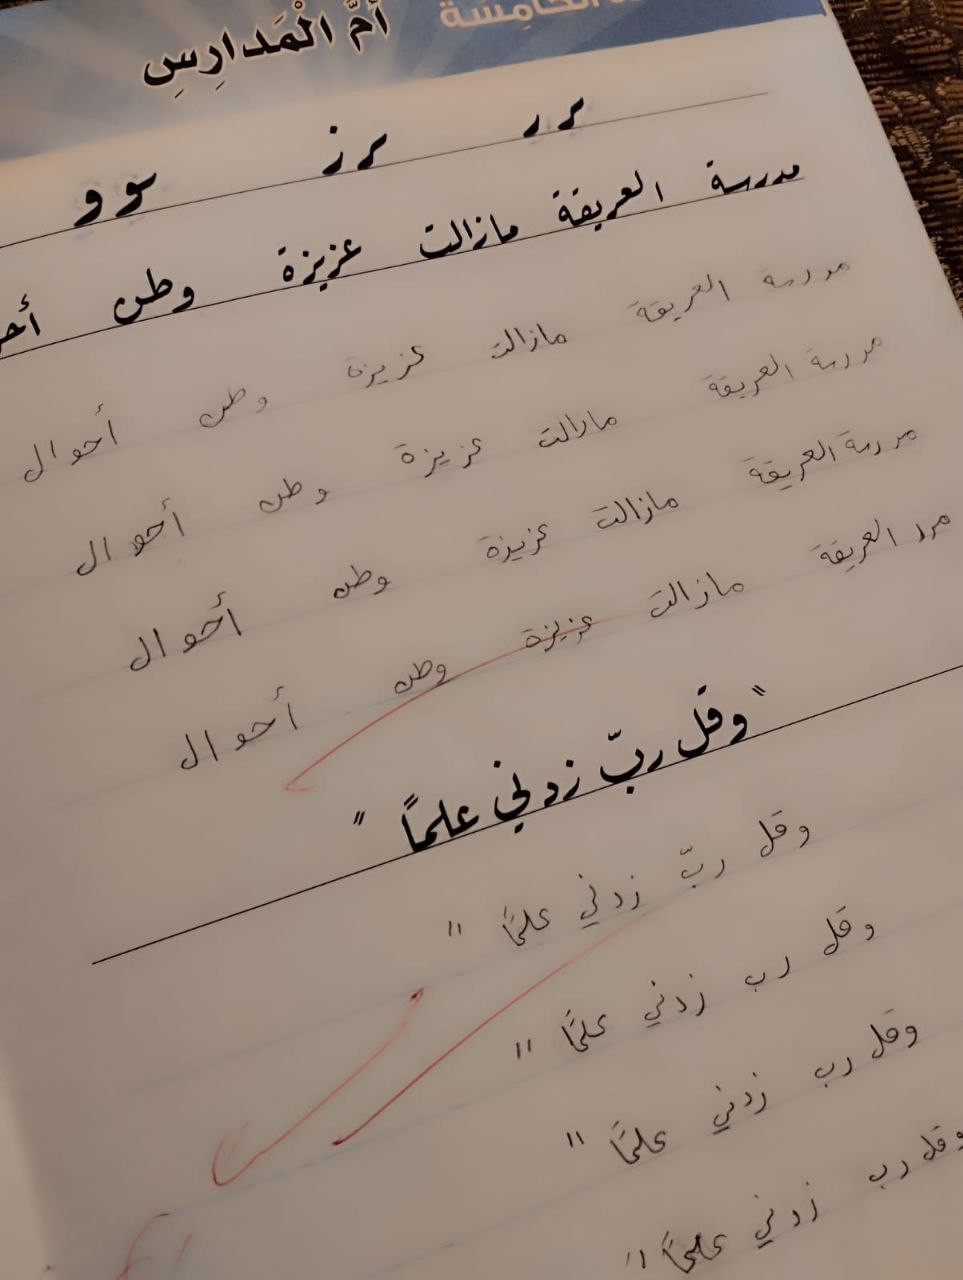 الخامسة أُمُّ الْمَدارِسِ
ر ر ر ز و و
مدرسة العريقة مازالت عزيزة وطن
مدرسة العريقة مازالت عزيزة وطن أحوال
مدرسة العريقة مازالت عزيزة وطن أحوال
مدرسة العريقة مازالت عزيزة وطن أحوال
العريقة مازالت عزيزة وطن أحوال
"وقل ربّ زدني علماً"
وقل ربّ زدني علمًا "
وقل رب زدني علمًا "
وقل رب زدني علمًا "
وقل رب زدني علمًا "